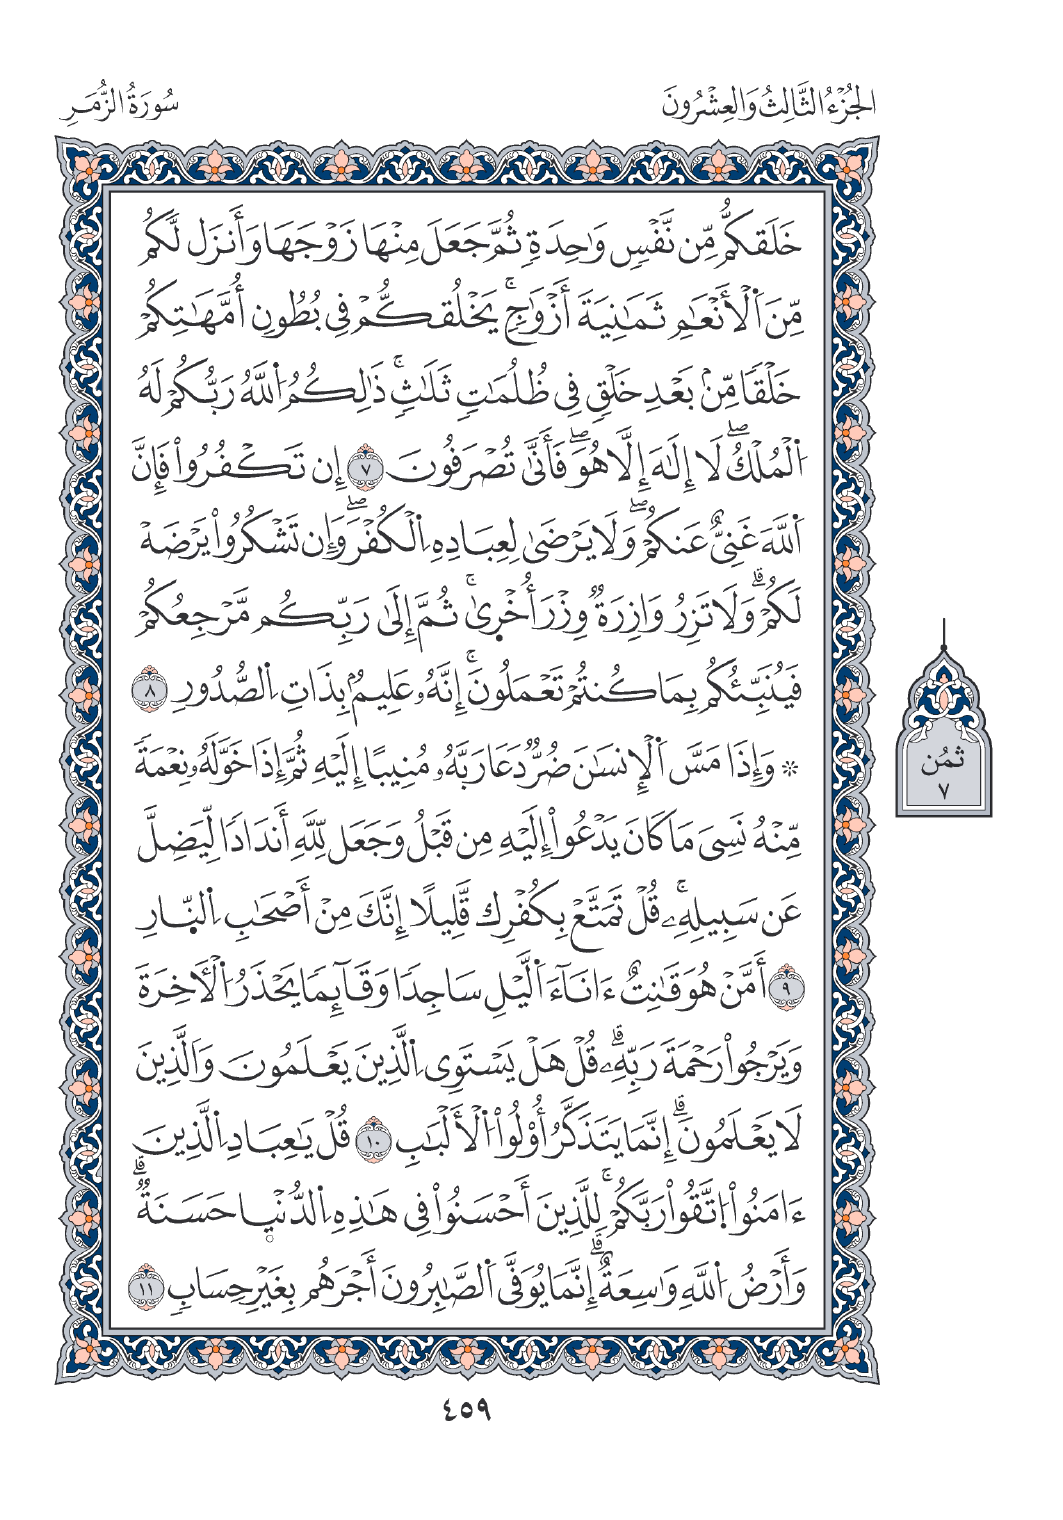 الجُزْءُ الثَّالِثُ وَالعِشْرُونَ
سُورَةُ الزُّمَرِ
خَلَقَكُم مِّن نَّفْسٖ وَٰحِدَةٖ ثُمَّ جَعَلَ مِنْهَا زَوْجَهَا وَأَنزَلَ لَكُم
مِّنَ اَ۬لْأَنْعَٰمِ ثَمَٰنِيَةَ أَزْوَٰجٖۚ يَخْلُقُكُمْ فِي بُطُونِ أُمَّهَٰتِكُمْ
خَلْقاٗ مِّنۢ بَعْدِ خَلْقٖ فِي ظُلُمَٰتٖ ثَلَٰثٖۚ ذَٰلِكُمُ اُ۬للَّهُ رَبُّكُمْ لَهُ
اُ۬لْمُلْكُۖ لَا إِلَٰهَ إِلَّا هُوَۖ فَأَنَّىٰ تُصْرَفُونَ ٧ إِن تَكْفُرُواْ فَإِنَّ
اَ۬للَّهَ غَنِيٌّ عَنكُمْۖ وَلَا يَرْضَىٰ لِعِبَادِهِ اِ۬لْكُفْرَۖ وَإِن تَشْكُرُواْ يَرْضَهْ
لَكُمْۗ وَلَا تَزِرُ وَازِرَةٞ وِزْرَ أُخْرۭىٰۚ ثُمَّ إِلَىٰ رَبِّكُم مَّرْجِعُكُمْ
فَيُنَبِّئُكُم بِمَا كُنتُمْ تَعْمَلُونَۚ إِنَّهُۥ عَلِيمُۢ بِذَاتِ اِ۬لصُّدُورِ ٨
۞ وَإِذَا مَسَّ اَ۬لْإِنسَٰنَ ضُرّٞ دَعَا رَبَّهُۥ مُنِيباً إِلَيْهِ ثُمَّ إِذَا خَوَّلَهُۥ نِعْمَةٗ
مِّنْهُ نَسِيَ مَا كَانَ يَدْعُواْ إِلَيْهِ مِن قَبْلُ وَجَعَل لِّلهِ أَندَاداٗ لِّيَضِلَّ
عَن سَبِيلِهِۦۚ قُلْ تَمَتَّعْ بِكُفْرِك قَّلِيلاً إِنَّكَ مِنْ أَصْحَٰبِ اِ۬لنّ۪ارِ
٩ أَمَّنْ هُوَ قَٰنِتٌ ءَانَآءَ اَ۬لَّيْلِ سَاجِداٗ وَقَآئِماٗ يَحْذَرُ اُ۬لْأٓخِرَةَ
وَيَرْجُواْ رَحْمَةَ رَبِّهِۦۗ قُلْ هَلْ يَسْتَوِي اِ۬لَّذِينَ يَعْلَمُونَ وَاَلَّذِينَ
لَا يَعْلَمُونَۗ إِنَّمَا يَتَذَكَّرُ أُوْلُواْ اُ۬لْأَلْبَٰبِ ١٠ قُلْ يَٰعِبَادِ اِ۬لَّذِينَ
ءَامَنُواْ اُ۪تَّقُواْ رَبَّكُمْۚ لِلَّذِينَ أَحْسَنُواْ فِي هَٰذِهِ اِ۬لدُّنْي۪ا حَسَنَةٞۗ
وَأَرْضُ اُ۬للَّهِ وَٰسِعَةٌۗ إِنَّمَا يُوَفَّى اَ۬لصَّٰبِرُونَ أَجْرَهُم بِغَيْرِ حِسَابٖ ١١
ثُمُن
٧
٤٥٩